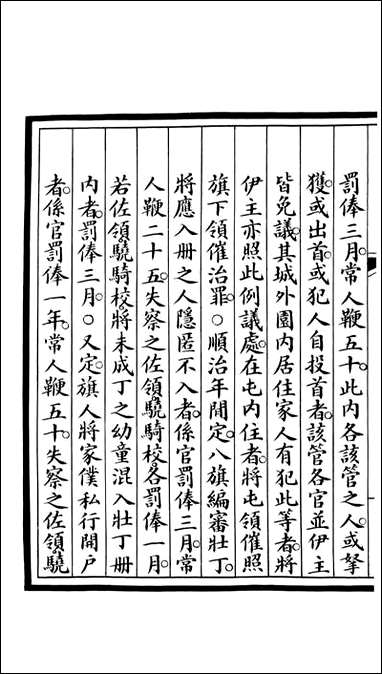 罰俸三月。常人鞭五十。此内各該管之人。或拏
獲。或出首。或犯人自投首者。該管各官並伊主
皆免議。其城外園内居住家人有犯此等者。將
伊主亦照此例議處。在屯内住者。將屯領催照
旗下領催治罪。○順治年間定。八旗編審壯丁。
將應入册之人隱匿不入者。係官罰俸三月。常
人鞭二十五。失察之佐領驍騎校。各罰俸一月。
若佐領驍騎校。將未成丁之幼童混入壯丁册
内者。罰俸三月。○又定。旗人將家僕私行開户
者。係官罰俸一年。常人鞭五十。失察之佐領驍